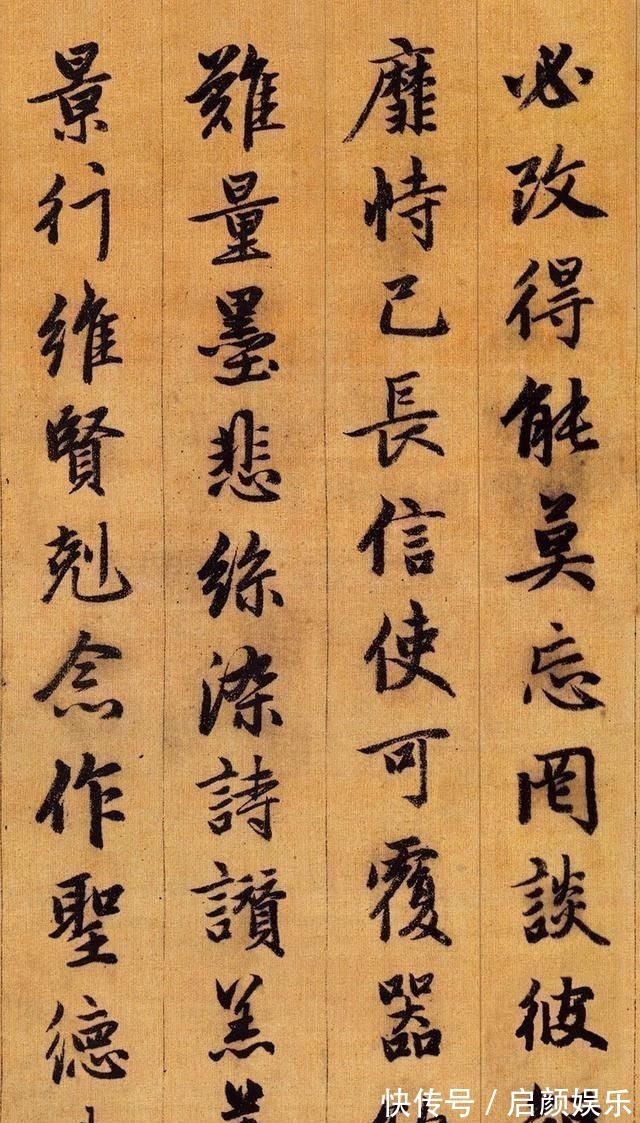 必改得能莫忘罔談彼
靡恃己長信使可覆器
難量墨悲絲染詩讚羔
景行維賢剋念作聖德
快传号／启颜娱乐